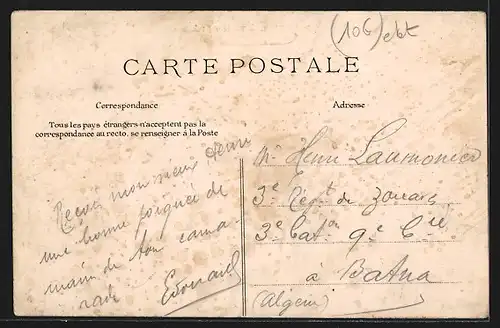 (106) ebt
CARTE POSTALE
Correspondance
Adresse
Tous les pays étrangers n'acceptent pas la
correspondance au recto, se renseigner à la Poste
Reçois mon vieux Henri
une bonne poignée de
main de ton cama
rade Edouard
Mr Henri Laumonier
3e Régt de Zouaves
3e Baton 9e Cie
à Batna
(Algérie)